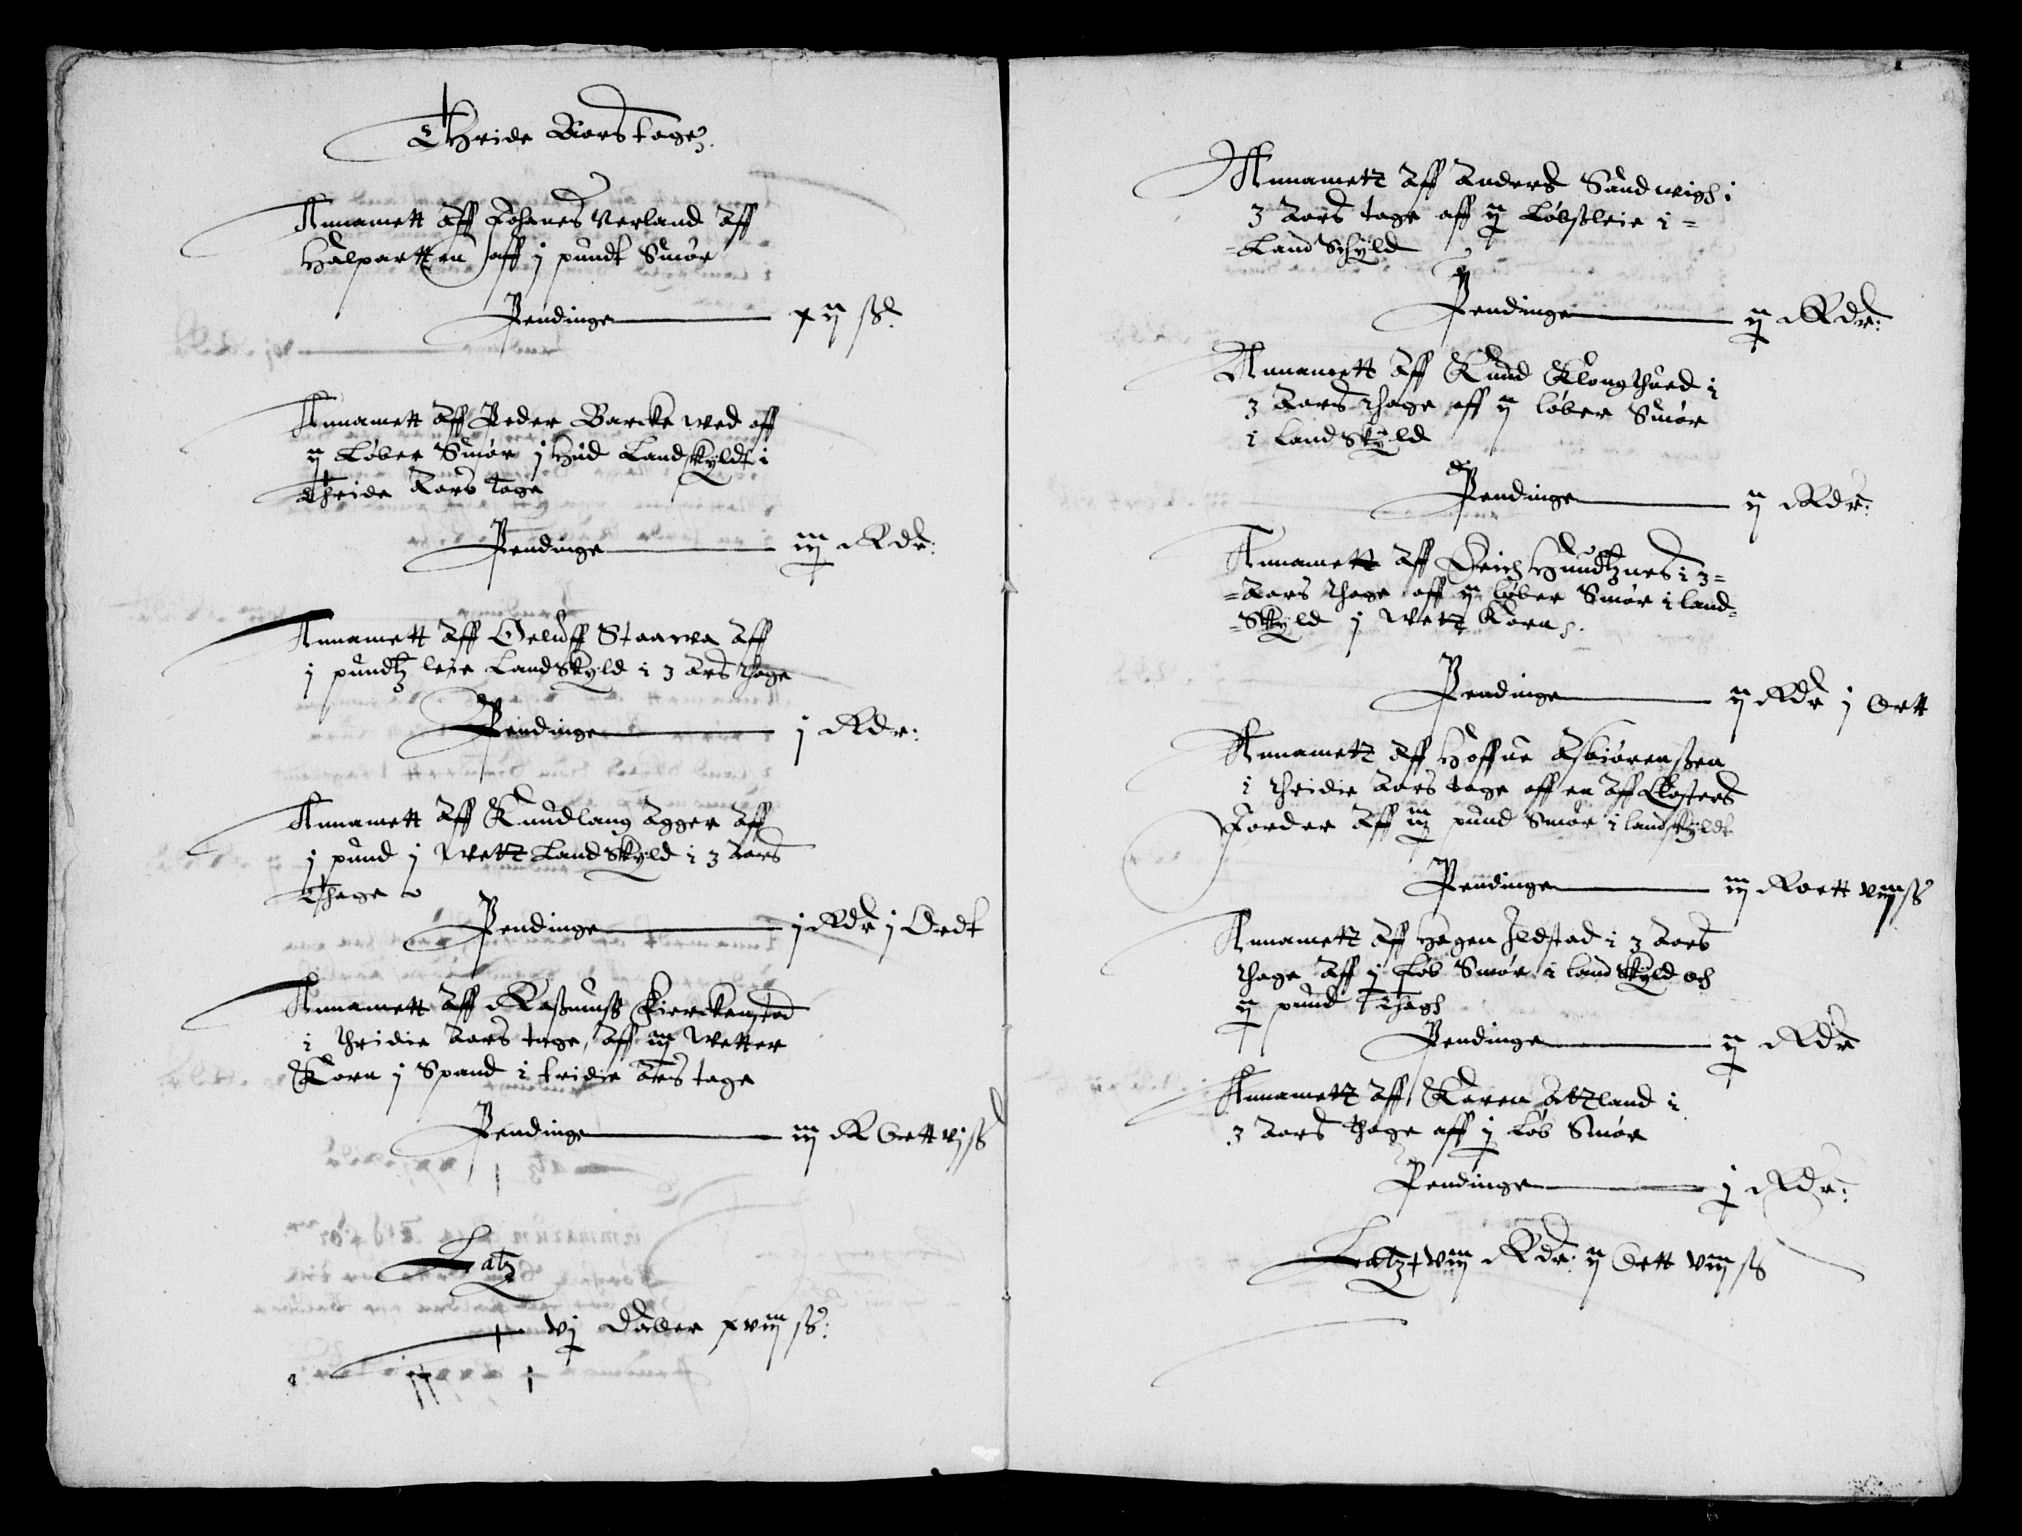 Thride Aars tage
Annamett Aff Johanes Verland Aff
Halpartten aff j pundt Smør
Pendinge xij ß
Annamett Aff Peder Barcke wed aff
ij Løber Smør j Hud Landskyldt i
Thride Aars tage
Pendinge iij Rdr:
Annamett Aff Oeluff Staarva Aff
j pundtz leie LandSkyld i 3 Ars thage
Pendinge j Rdr:
Annamett Aff Knudlang Agger Aff
j pund j Wett LandSkyld i 3 Aars
Thage
Pendinge j Rdr j Ordt
Annamett Aff Rasmuss Kierckenstad
i thridie Aars tage, Aff iij Wetter
Korn j Spand i tridie Ars tage
Pendinge iij R Ortt vj ß
Latz
vj Daller xviij ß:
Annamett Aff Anders Sandwigh i
3 Aars tage aff ij Løbsleie i =
= Land Schyld
Pendinge ij Rdr:
Annamett Aff Knud Klongthued i
3 Aars thage aff ij løber Smør
i LandSkyld
Pendinge ij Rdr:
Annamett Aff Erich Hundtznes i 3 =
= Aars thage aff ij løber Smør i land=
= Skyld j Wett Korn
Pendinge ij Rdr j Ortt
Annamett Aff Hoffue Asbiørenssen
i thridie Aars tage aff en Aff Closters
Jorder Aff iij pund Smør i landskyldt
Pendinge iij R ortt viij ß
Annamett Aff Hagen Ildstad i 3 Aars
thage Aff j Løb Smør i landSkyld och
ij pund Thagh
Pendinge ij Rdr
Annamett Aff Karen Attland i
3 Aars thage aff j Løb Smør
Pendinge j Rdr:
Latz + viij Rdr: ij Ortt viij ß